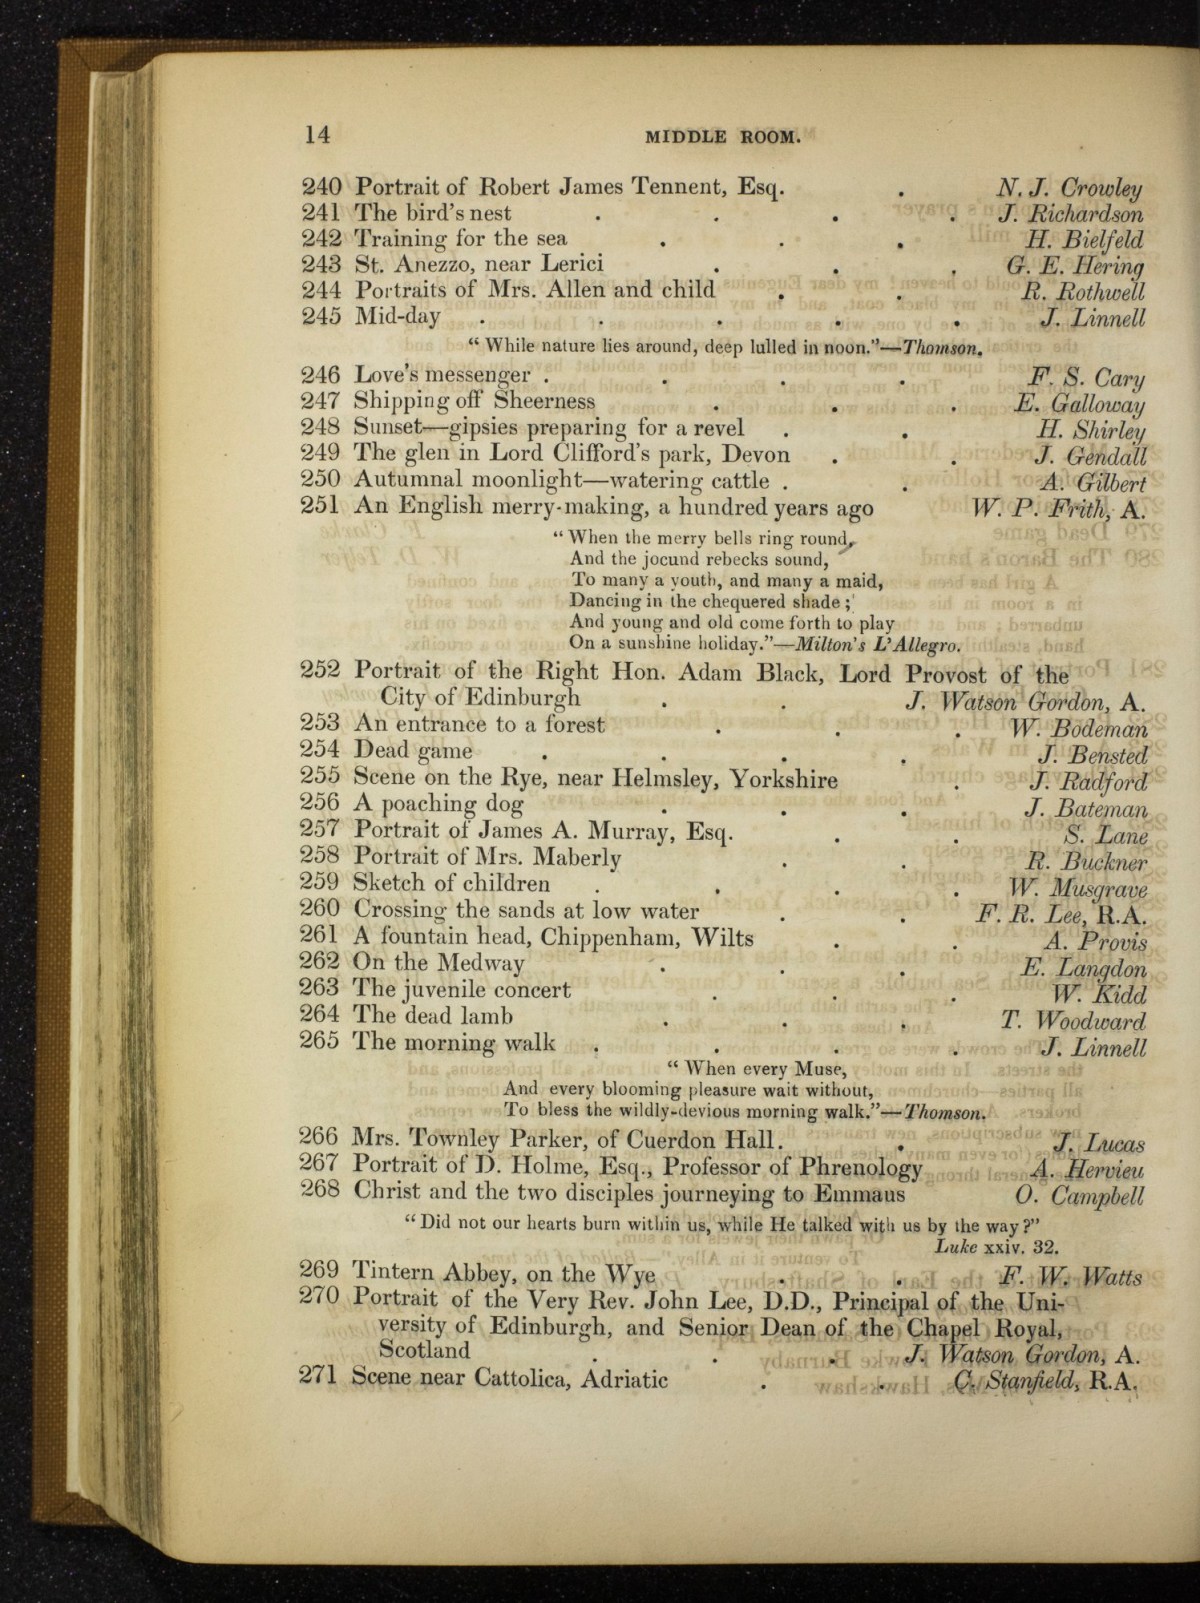 14 MIDDLE ROOM.
240 Portrait of Robert James Tennent, Esq. . N. J. Crowley
241 The bird's nest . . . . J. Richardson
242 Training for the sea . . . H. Bielfeld
243 St. Anezzo, near Lerici . . . G. E. Hering
244 Portraits of Mrs. Allen and child . . R. Rothwell
245 Mid-day . . . . . J. Linnell
“ While nature lies around, deep lulled in noon.”—Thomson.
246 Love's messenger . . . . F. S. Cary
247 Shipping off Sheerness . . . E. Galloway
248 Sunset—gipsies preparing for a revel . . H. Shirley
249 The glen in Lord Clifford's park, Devon . . J. Gendall
250 Autumnal moonlight—watering cattle . . A. Gilbert
251 An English merry-making, a hundred years ago W. P. Frith, A.
“ When the merry bells ring round,
And the jocund rebecks sound,
To many a youth, and many a maid,
Dancing in the chequered shade ;
And young and old come forth to play
On a sunshine holiday.”—Milton's L'Allegro.
252 Portrait of the Right Hon. Adam Black, Lord Provost of the
City of Edinburgh . . J. Watson Gordon, A.
253 An entrance to a forest . . . W. Bodeman
254 Dead game . . . . J. Bensted
255 Scene on the Rye, near Helmsley, Yorkshire . J. Radford
256 A poaching dog . . . J. Bateman
257 Portrait of James A. Murray, Esq. . . S. Lane
258 Portrait of Mrs. Maberly . . R. Buckner
259 Sketch of children . . . . W. Musgrave
260 Crossing the sands at low water . . F. R. Lee, R.A.
261 A fountain head, Chippenham, Wilts . . A. Provis
262 On the Medway . . . E. Langdon
263 The juvenile concert . . . W. Kidd
264 The dead lamb . . . T. Woodward
265 The morning walk . . . . J. Linnell
“ When every Muse,
And every blooming pleasure wait without,
To bless the wildly-devious morning walk.”—Thomson.
266 Mrs. Townley Parker, of Cuerdon Hall. . J. Lucas
267 Portrait of D. Holme, Esq., Professor of Phrenology A. Hervieu
268 Christ and the two disciples journeying to Emmaus O. Campbell
“ Did not our hearts burn within us, while He talked with us by the way ?”
Luke xxiv. 32.
269 Tintern Abbey, on the Wye . . F. W. Watts
270 Portrait of the Very Rev. John Lee, D.D., Principal of the Uni-
versity of Edinburgh, and Senior Dean of the Chapel Royal,
Scotland . . . J. Watson Gordon, A.
271 Scene near Cattolica, Adriatic . . C. Stanfield, R.A.